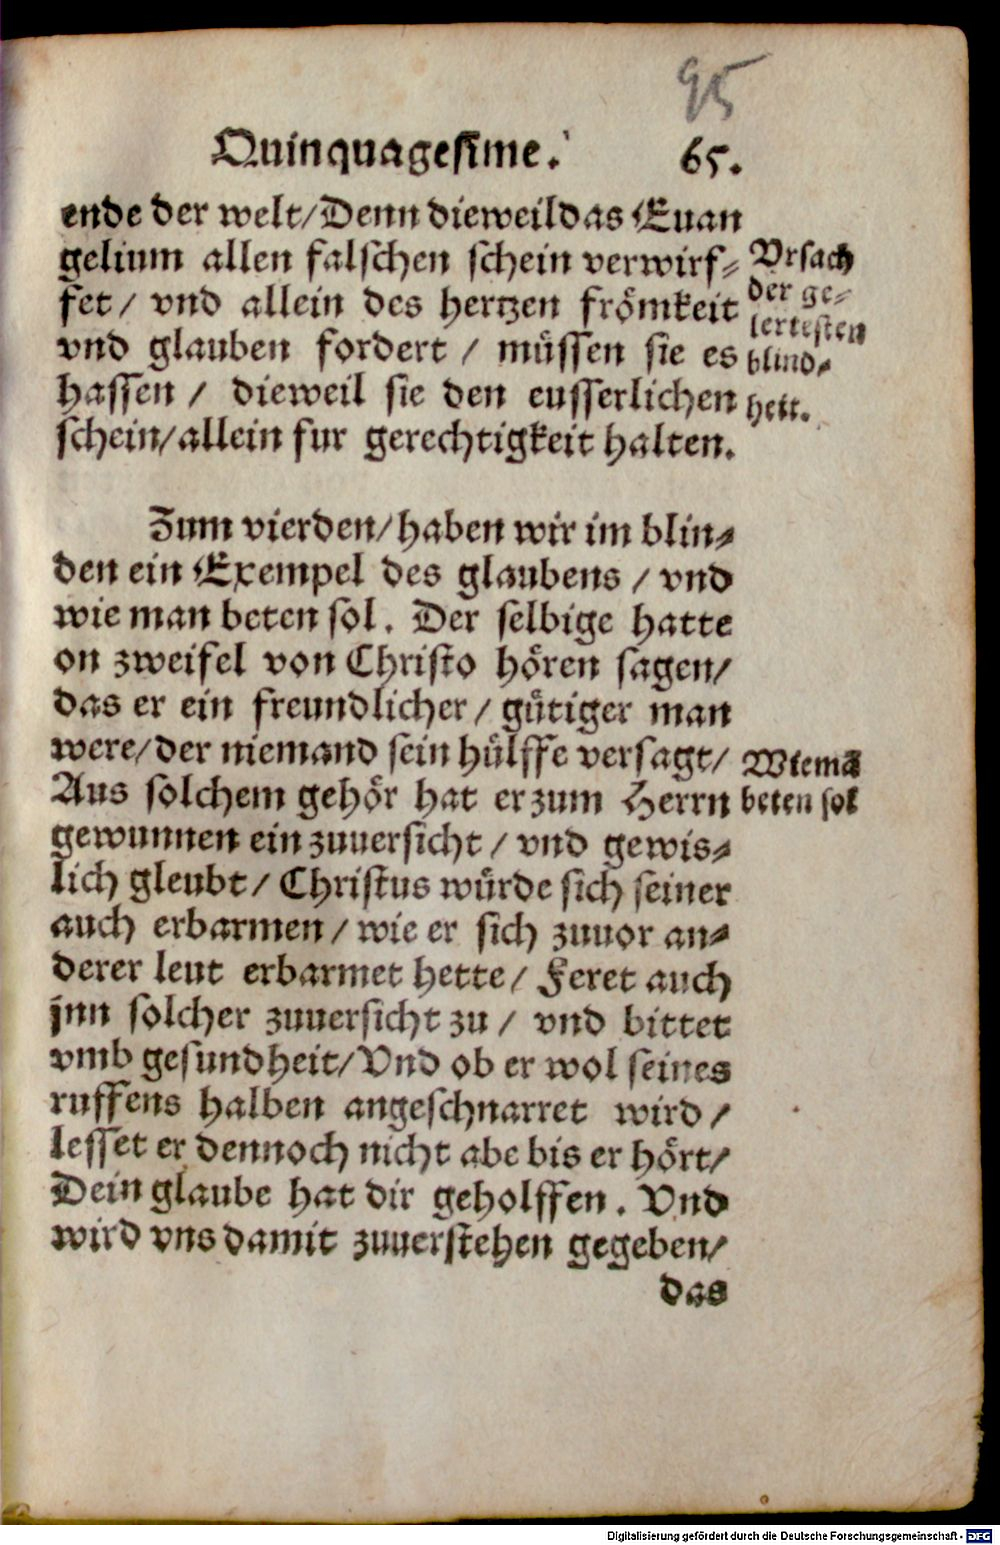 95
Quinquagesime.
65.
ende der welt/Denn dieweil das Euan
gelium allen falschen schein verwirf⸗
fet/ vnd allein des hertzen frömkeit
vnd glauben fordert / müssen sie es
hassen / dieweil sie den eusserlichen
schein/allein fur gerechtigkeit halten.
Vrsach
der ge⸗
lertesten
blind⸗
heit.
Zum vierden/haben wir im blin⸗
den ein Exempel des glaubens / vnd
wie man beten sol. Der selbige hatte
on zweifel von Christo hören sagen/
das er ein freundlicher/ gütiger man
were/der niemand sein hülffe versagt/
Aus solchem gehör hat er zum Herrn
gewunnen ein zuuersicht / vnd gewis⸗
lich gleubt/ Christus würde sich seiner
auch erbarmen / wie er sich zuuor an⸗
derer leut erbarmet hette/ Feret auch
jnn solcher zuuersicht zu / vnd bittet
vmb gesundheit/Vnd ob er wol seines
ruffens halben angeschnarret wird /
lesset er dennoch nicht abe bis er hört/
Dein glaube hat dir geholffen. Vnd
wird vns damit zuuerstehen gegeben/
Wie mā
beten sol
das
Digitalisierung gefördert durch die Deutsche Forschungsgemeinschaft - DFG